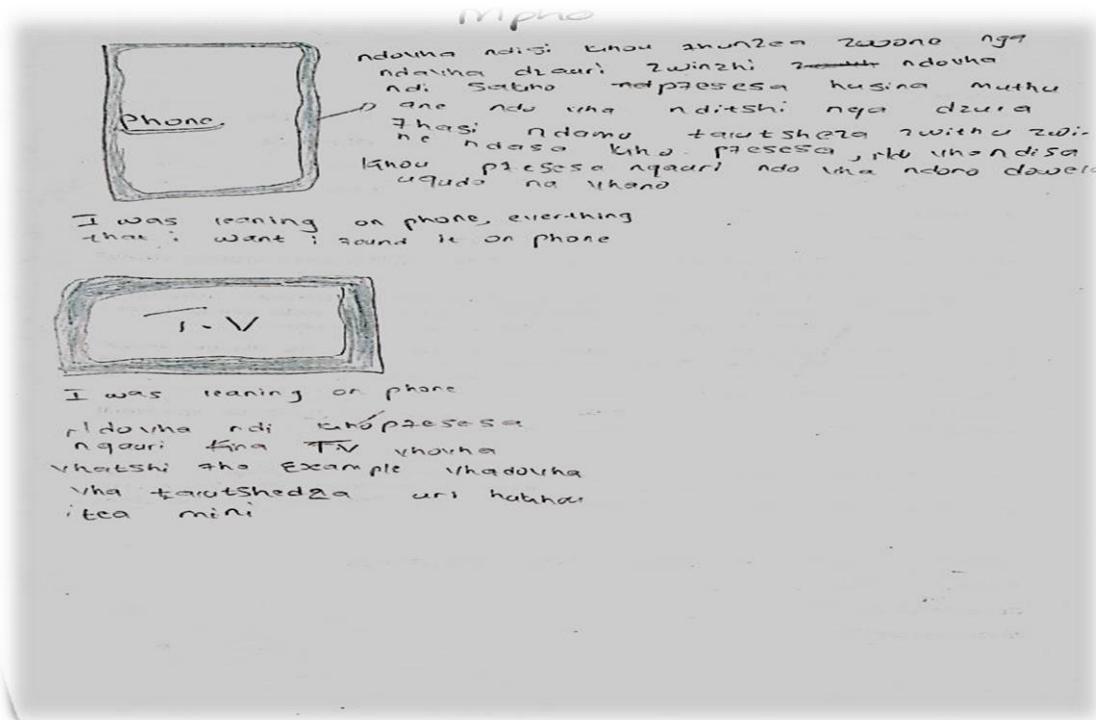 Mpho
Phone
ndovha ndisi khou gunzea zwone nga
ndavha dzauri zwinzhi ndovha
ndi sakho ndpzesesa husina muthu
ane ndo vha nditshi nga dzula
fhasi ndamu talutsheza zwithu zwi-
ne ndasa kho pzesesa, ndo vha ndisa
khou pzesesa ngauri ndo vha ndoro dowela
uguda na vhano
I was leaning on phone, everthing
that i want i found it on phone
T.V
I was leaning on phone
Ndovha ndi khopzesesa
ngauri kha T.V vhovha
vhatshi fha Example vhadovha
vha talutshedza uri hukhou
itea mini